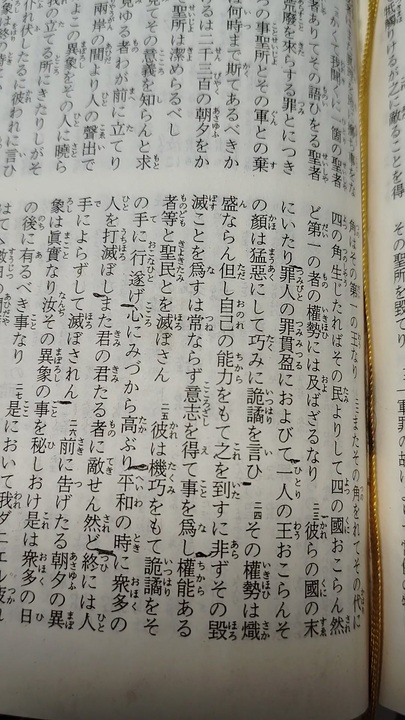 て我聞に一箇の聖者
者ありてその語ひをる聖者
廢を來らする罪とにつき
の事聖所とその軍との棄
何時まで斯てあるべきか
るは二千三百の朝夕をか
聖所は潔めらるべし
てその意義を知らんと求
見ゆる者わが前に立てり
兩岸の間より人の聲出で
よこの異象をその人に曉ら
我の立てる所にきたりしがそ
れ伏したるに彼われに言ひ
角はその第一の王なり 三またその角をれてその代に
四の角生じたればその民よりして四の國おこらん然
ど第一の者の權勢には及ばざるなり 二三彼らの國の末
にいたり罪人の罪貫盈におよびて一人の王おこらんそ
の顏は猛惡にして巧みに詭譎を言ひ 二四その權勢は熾
盛ならん但し自己の能力をもて之を到すに非ずその毀
滅ことを爲すは常ならず意志を得て事を爲し權能ある
者等と聖民とを滅ぼさん 二五彼は機巧をもて詭譎をそ
の手に行ひ遂げ心にみづから高ぶり平和の時に衆多の
人を打滅ぼしまた君の君たる者に敵せん然ど終には人
手によらずして滅ぼされん 二六前に告げたる朝夕の異
象は眞實なり汝その異象の事を秘しおけ是は衆多の日
の後に有るべき事なり 二七是において我ダニエル
その聖所を毀てり